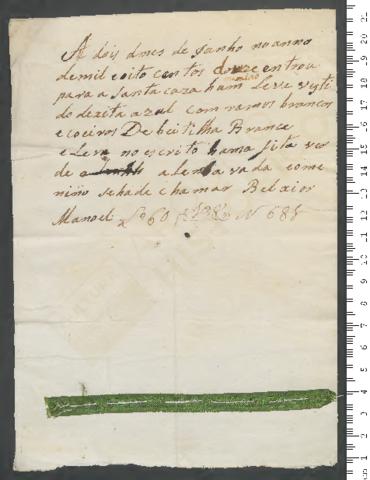 A dois dmes de Junho no anno
de mil e oito centos douze entrou
para a Santa caza hum leve vesti
do de xita azul com ramos brancos
e coeiros De beitilha Brance
e leva no escrito huma fita ver
de alenbavada come
nino se ha de chamar Belxior
Manoel Lº 60 f 198 N 688